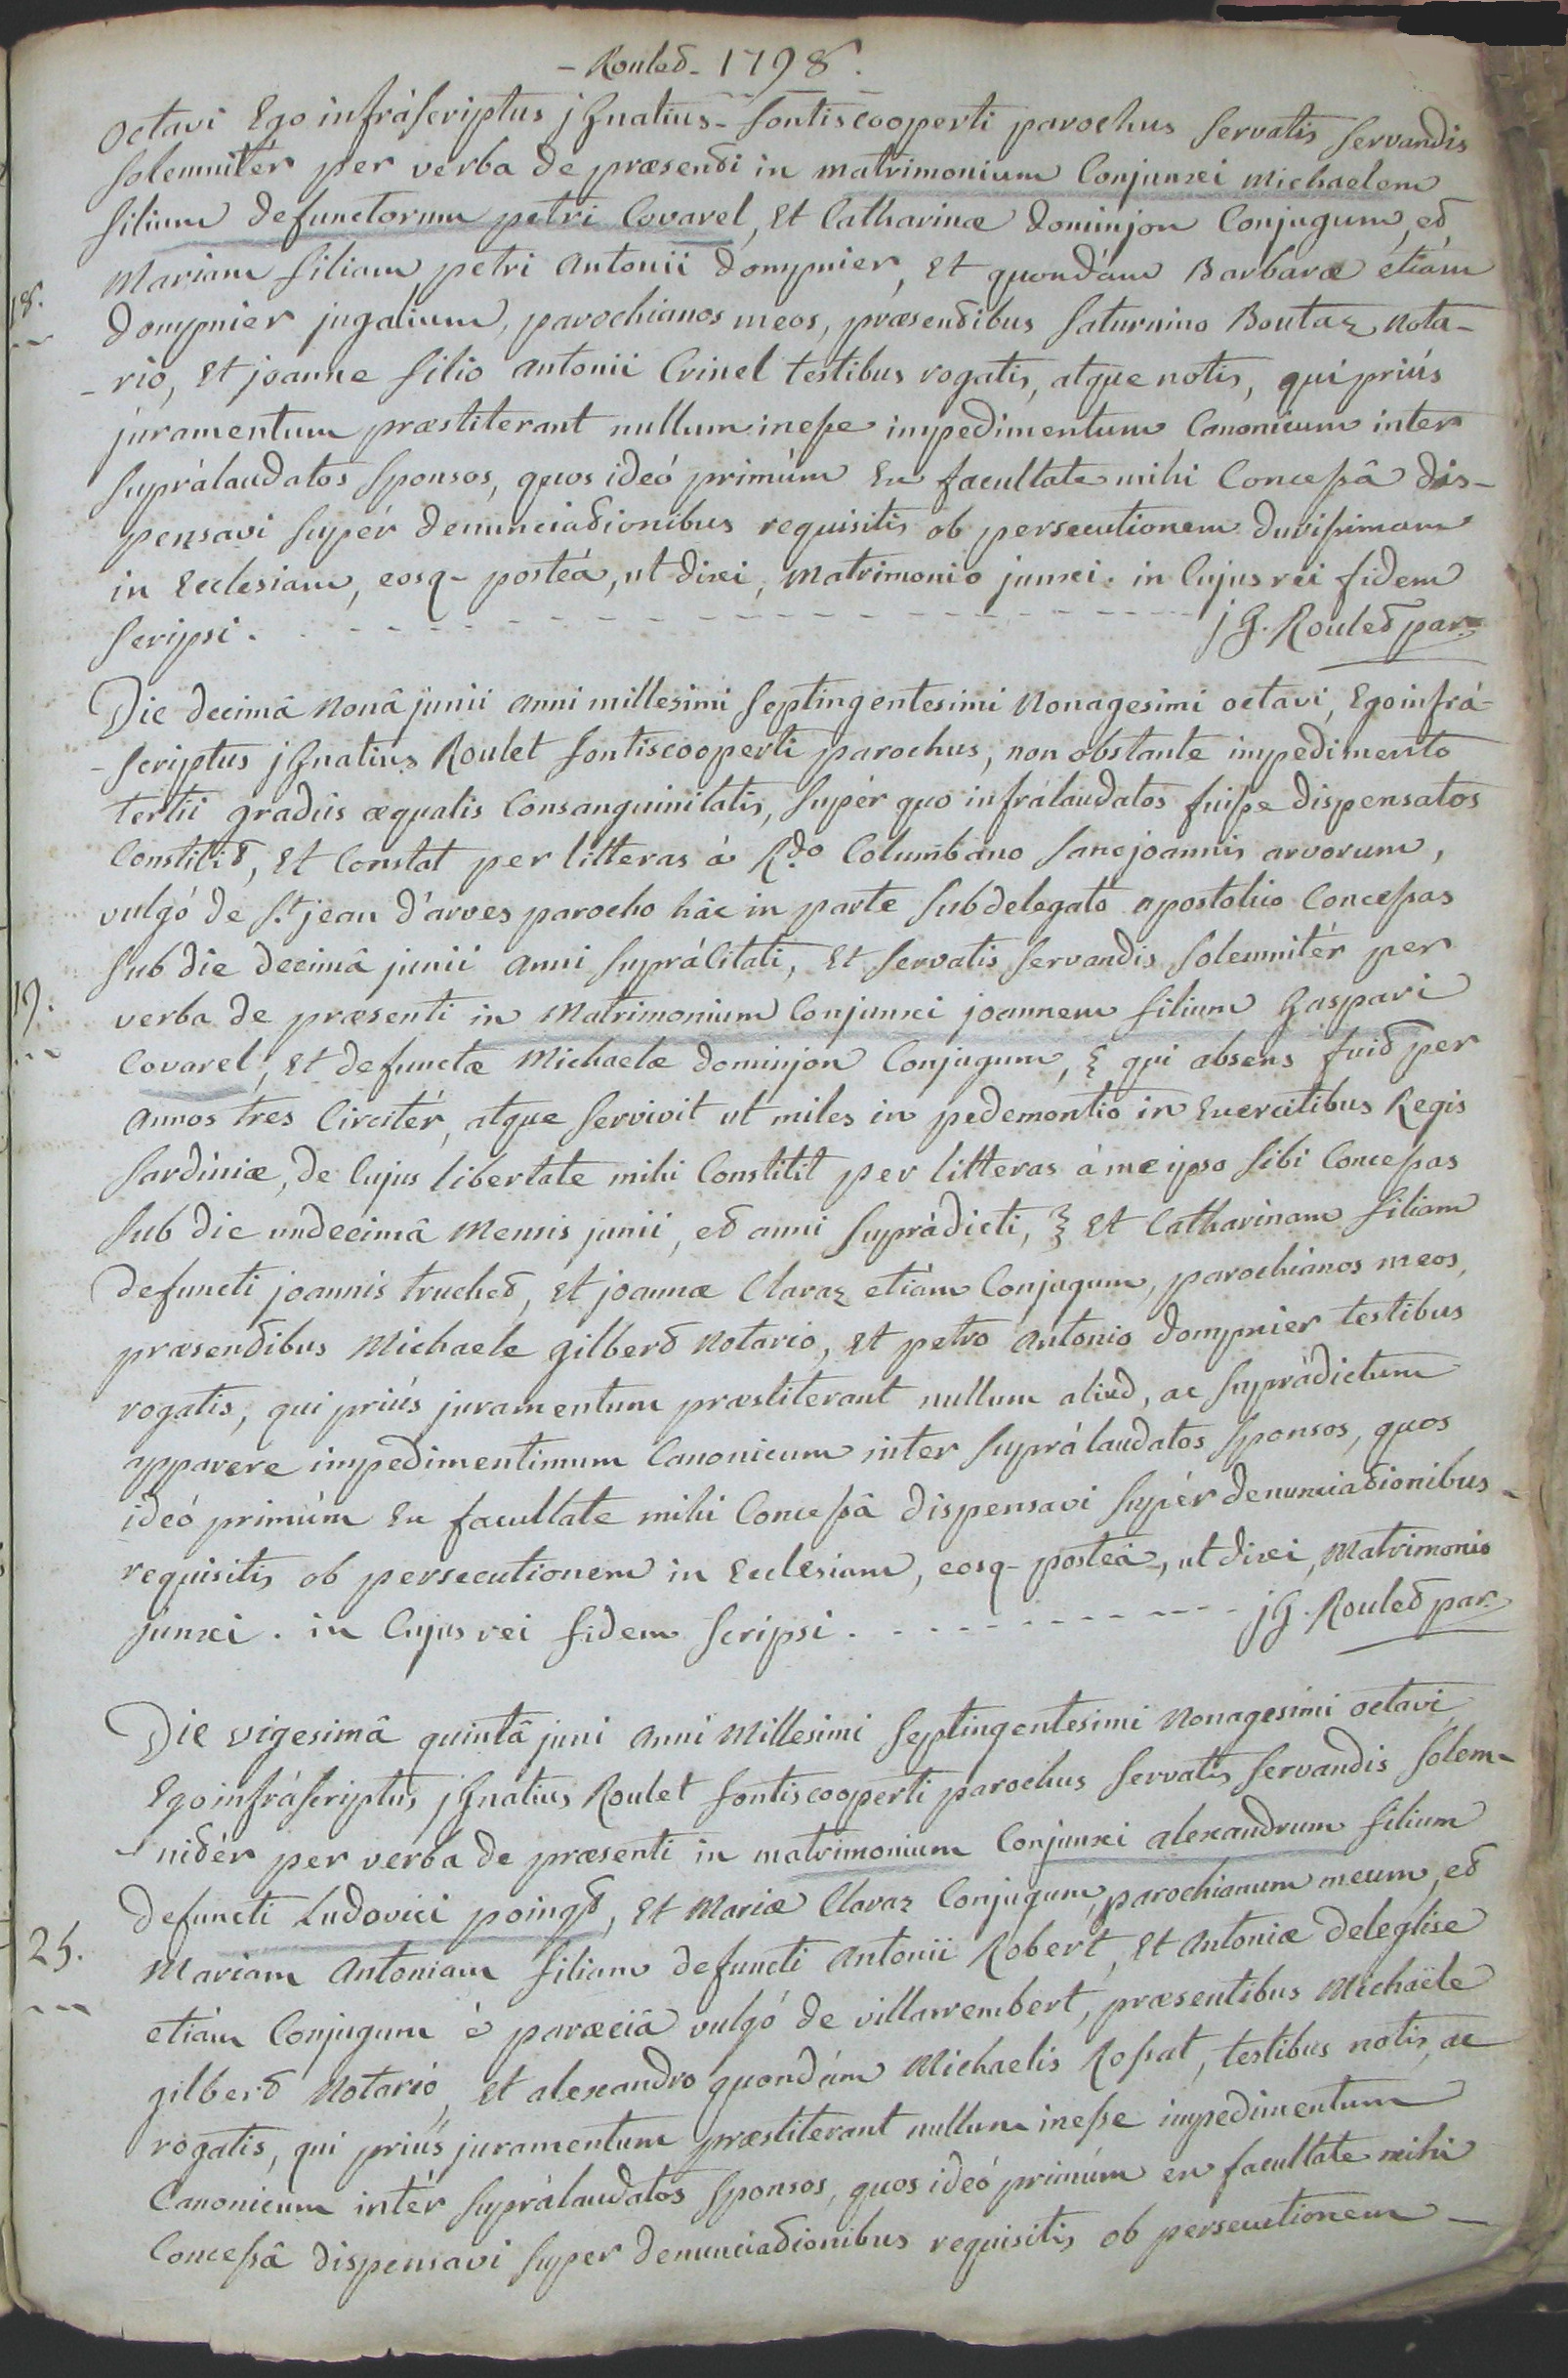 - Roulet - 1798.
octavi Ego infráscriptus jgnatius - fontiscooperti parochus servatis servandis
solemnitér per verba de præsenti in matrimonium Conjunxi Michaelem
filium defunctorum petri Covarel, Et Catharinæ dominjon Conjugum, et
Mariam filiam petri Antonii dompnier, Et quondám Barbaræ etiám
18.
dompnier jugalium, parochianos meos, præsentibus saturnino Boutaz nota-
- rio, Et joanne filio antonii Crinel testibus rogatis, atque notis, qui priús
juramentum præstiterant nullum inesse impedimentum Canonicum inter
suprálaudatos sponsos, quos ideó primúm Ex facultate mihi Concessâ dis-
pensavi supér denunciationibus requisitis ob persecutionem durissimam
in Ecclesiam, eosq- posteá, ut dixi, Matrimonio junxi. in Cujus rei fidem
scripsi. - - - - - - - - - - - - - - - - jg. Roulet par.
Die decimâ nonâ junii anni millesimi septingentesimi Nonagesimi octavi, Ego infrá-
- scriptus jgnatius Roulet fontiscooperti parochus, non obstante impedimento
tertii gradús æqualis Consanguinitatis, supér quo infrálaudatos fuisse dispensatos
Constitit, Et Constat per litteras á Rdo. Columbano sancjoannis arvorum,
vulgó de st. jean d'arves parocho hâc in parte subdelegato apostolico Concessas
sub die decimâ junii anni suprácitati, Et servatis servandis solemnitér per
19.
verba de præsenti in Matrimonium Conjunxi joannem filium Gaspari
Covarel, Et defunctæ Michaelæ dominjon Conjugum, { qui absens fuit per
annos tres Circitér, atque servivit ut miles in pedemontio in Exercitibus Regis
sardiniæ, de Cujus libertate mihi Constitit per litteras á me ipso sibi Concessas
sub die undecimâ Mensis junii, et anni suprádicti, } Et Catharinam filiam
defuncti joannis truchet, Et joannæ Claraz etiám Conjugum, parochianos meos,
præsentibus Michaele gilbert Notario, Et petro antonio dompnier testibus
rogatis, qui priús juramentum præstiterant nullum aliud, ac suprádictum
apparere impedimentimum Canonicum inter suprálaudatos sponsos, quos
ideó primúm Ex facultate mihi Concessâ dispensavi supér denunciationibus -
requisitis ob persecutionem in Ecclesiam, eosq- posteá, ut dixi, Matrimonio
junxi. in Cujus rei fidem scripsi. - - - - - - - - - jg. Roulet par.
Die vigesimâ quintâ juni anni Millesimi septingentesimi Nonagesimi octavi
Ego infráscriptus jgnatius Roulet fontiscooperti parochus servatis servandis solem-
- nitér per verba de præsenti in matrimonium Conjunxi alexandrum filium
defuncti Ludovici poingt, Et Mariæ Claraz Conjugum, parochianum meum, et
25.
Mariam Antoniam filiam defuncti Antonii Robert, Et Antoniæ deleglise
etiám Conjugum é paræciâ vulgó de villarembert, præsentibus Michaële
gilbert Notario, Et alexandro quondám Michaelis Rossat, testibus notis, ac
rogatis, qui priús juramentum præstiterant nullum inesse impedimentum
Canonicum intér suprálaudatos sponsos, quos ideó primúm ex facultate mihi
Concessâ dispensavi super denunciationibus requisitis ob persecutionem -